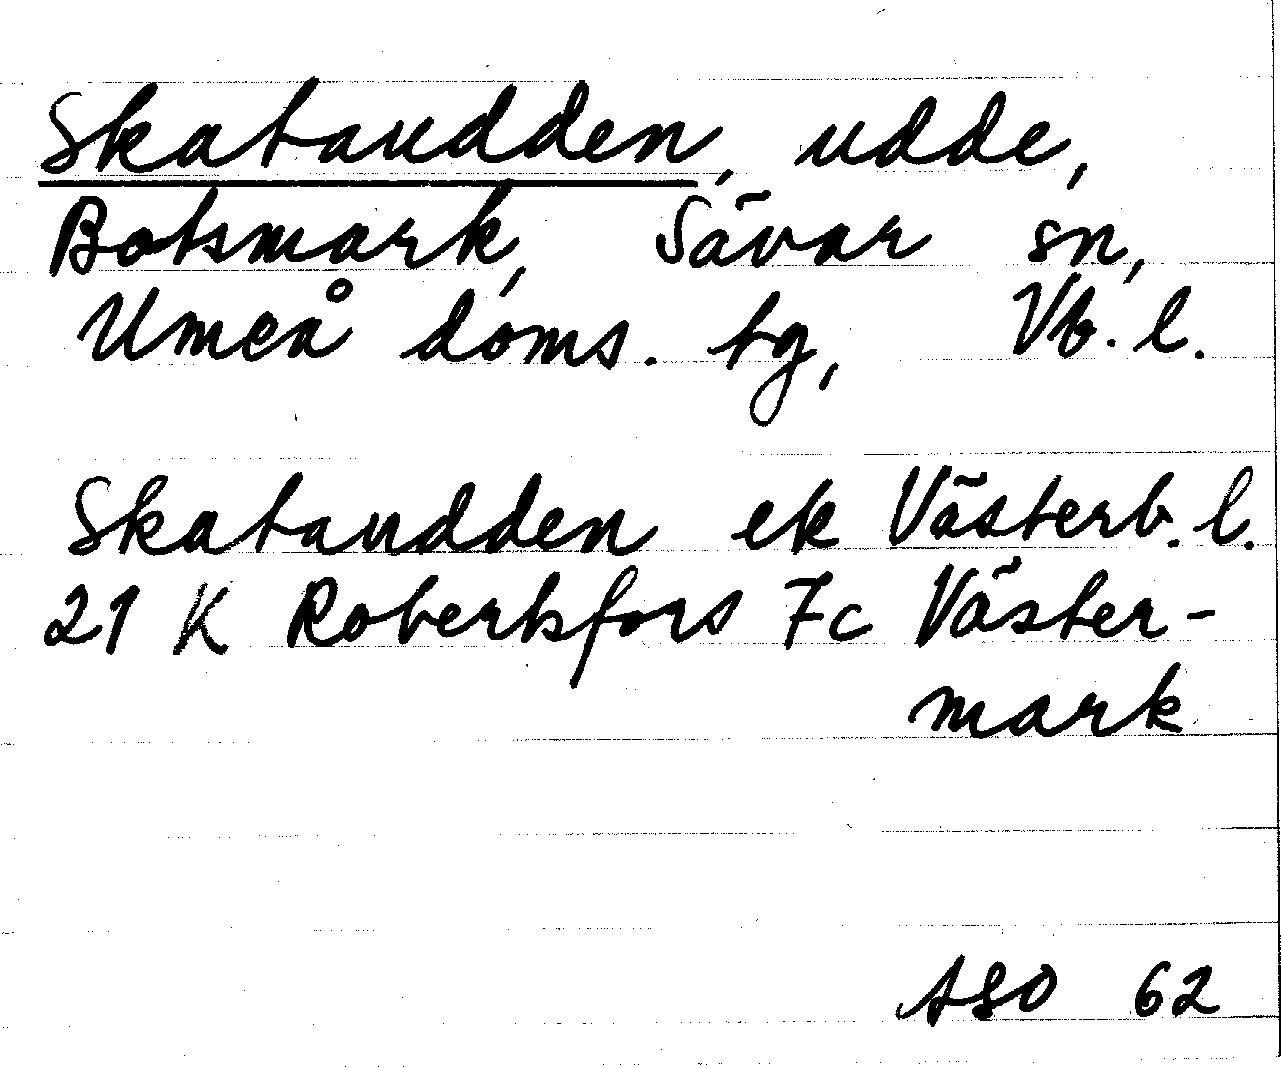 Skataudden, udde,
Botsmark, Sävar sn,
Umeå doms. tg, Vb. l.
Skataudden ek Västerb. l.
21 K Robertsfors 7c Väster-
mark
ASO 62